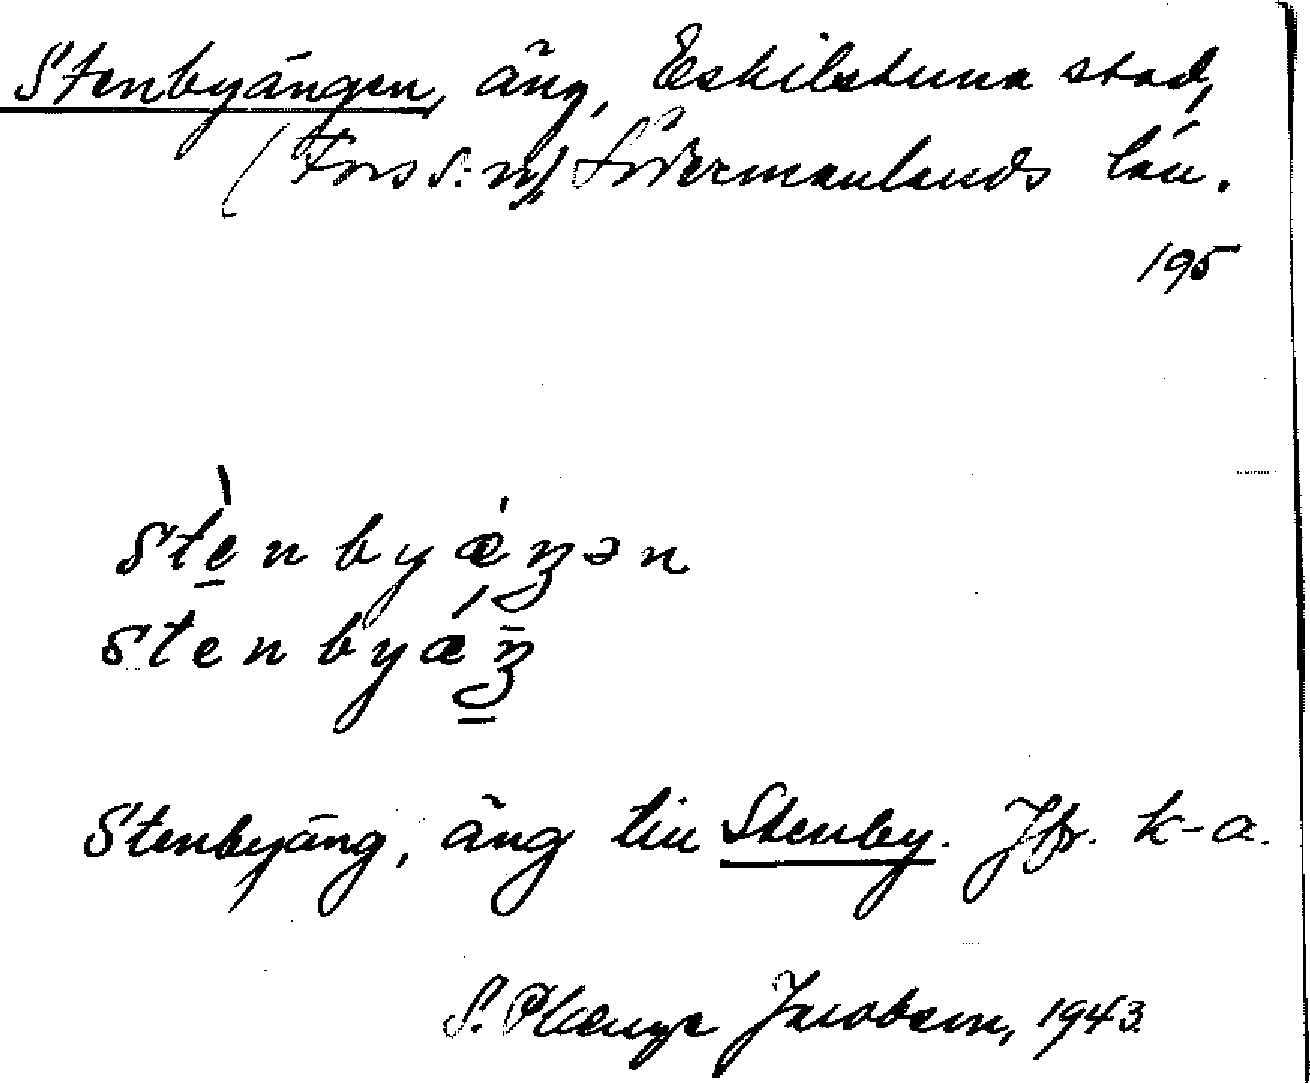 Stenbyängen, äng, Eskilstuna stad,
(Fors s:n) Södermanlands län.
195
stènbyǽŋən
stenbyǽŋ
Stenbyäng, äng till Stenby. Jfr. k-a.
S. Jacobson, 1943.